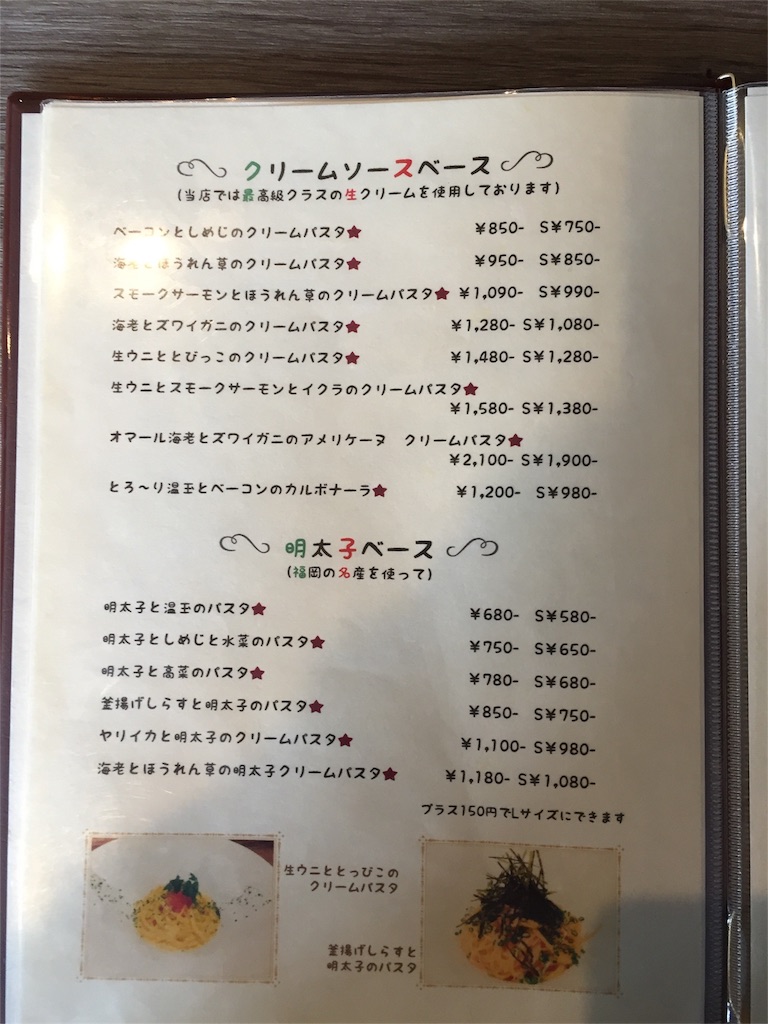 クリームソースベース
(当店では最高級クラスの生クリームを使用しております)
ベーコンとしめじのクリームパスタ★ ¥850- S¥750-
海老とほうれん草のクリームパスタ★ ¥950- S¥850-
スモークサーモンとほうれん草のクリームパスタ★ ¥1,090- S¥990-
海老とズワイガニのクリームパスタ★ ¥1,280- S¥1,080-
生ウニととびっこのクリームパスタ★ ¥1,480- S¥1,280-
生ウニとスモークサーモンとイクラのクリームパスタ★
¥1,580- S¥1,380-
オマール海老とズワイガニのアメリケーヌ クリームパスタ★
¥2,100- S¥1,900-
とろ〜り温玉とベーコンのカルボナーラ★ ¥1,200- S¥980-
明太子ベース
(福岡の名産を使って)
明太子と温玉のパスタ★ ¥680- S¥580-
明太子としめじと水菜のパスタ★ ¥750- S¥650-
明太子と高菜のパスタ★ ¥780- S¥680-
釜揚げしらすと明太子のパスタ★ ¥850- S¥750-
ヤリイカと明太子のクリームパスタ★ ¥1,100- S¥980-
海老とほうれん草の明太子クリームパスタ★ ¥1,180- S¥1,080-
プラス150円でLサイズにできます
生ウニととっびこの
クリームパスタ
釜揚げしらすと
明太子のパスタ